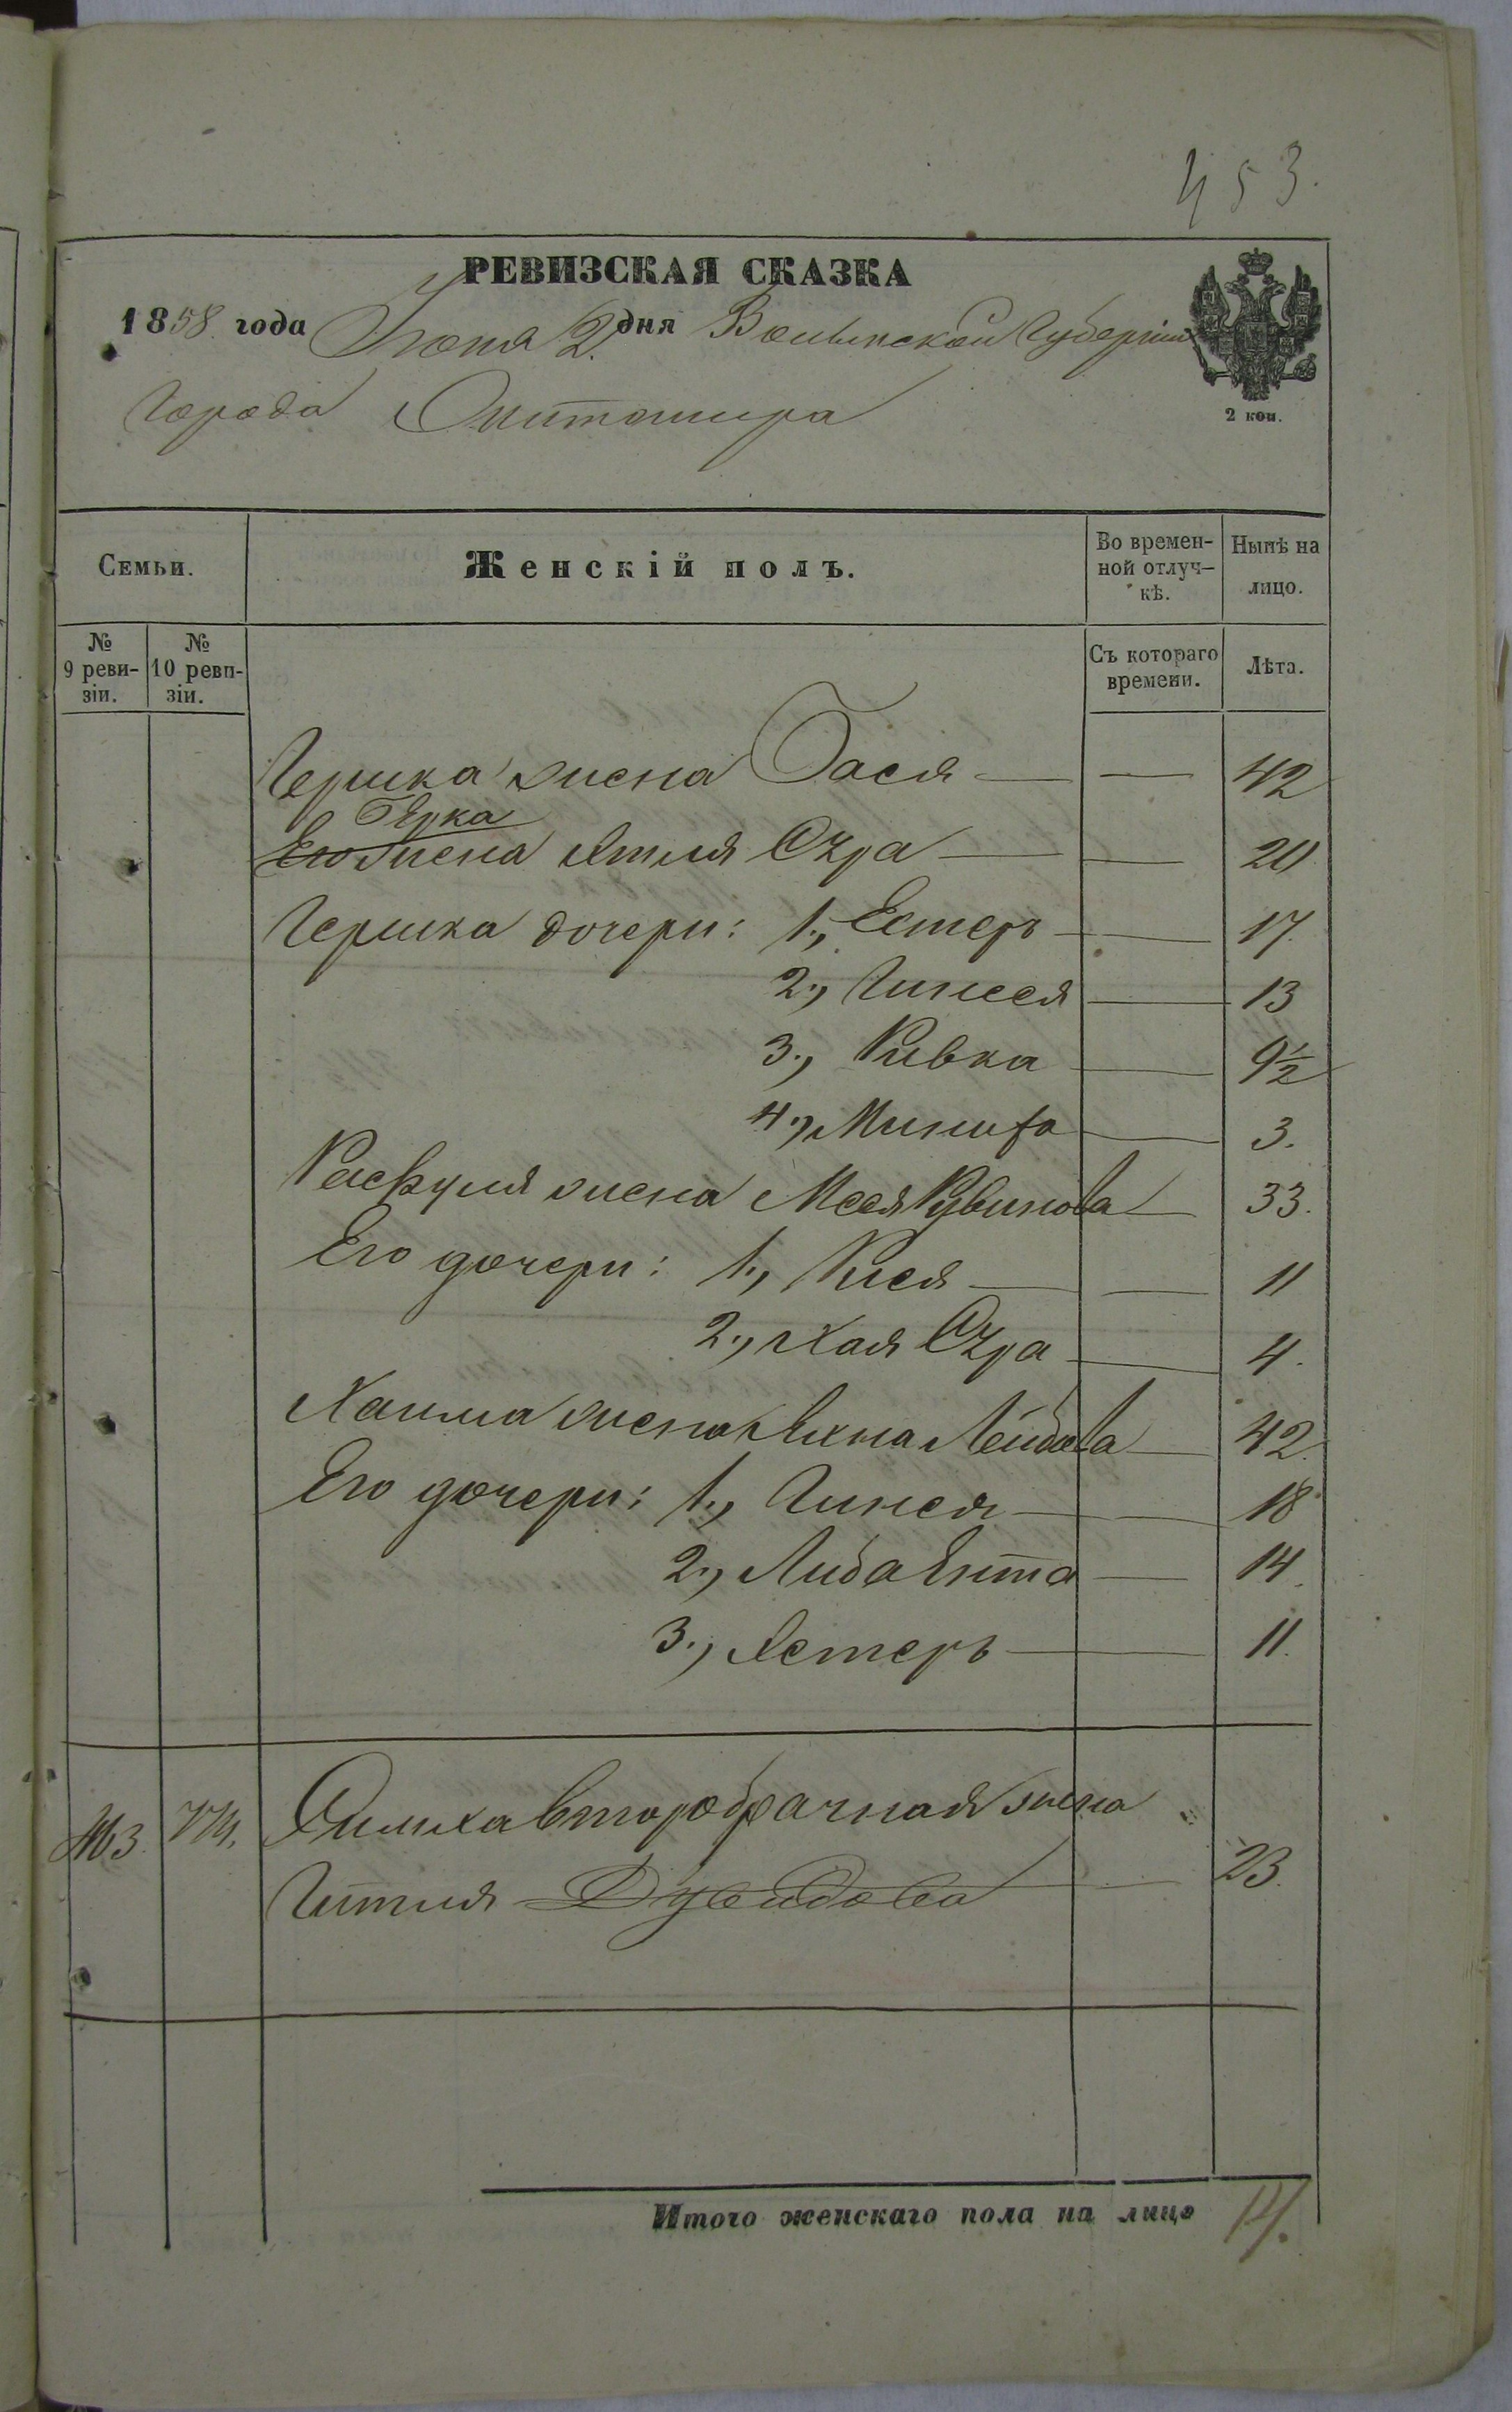 453.
РЕВИЗСКАЯ СКАЗКА
1858. года Іюня 2. дня Волынской Губерніи
города Житомира
2 коп.
Семьи.
Женскій полъ.
Во времен-
ной отлуч-
кѣ.
Нынѣ на
лицо.
№
9 реви-
зіи.
№
10 реви-
зіи.
Съ котораго
времени.
Лѣта.
Гершка жена Бася — — 42
Берка
Его жена Этля Сура — — 20
Гершка дочери: 1., Естеръ — 17.
2., Гинеся — 13
3., Ривка — 9½
4., — 3.
жена Мася Рувинова — 33.
Его дочери: 1., Рися — — 11
2., Хая Сура — 4.
Хаима жена Лейбова — 42.
Его дочери: 1., Гинеся — — 18
2., Либа Ента — 14.
3., Эстеръ — 11.
второбрачная жена
Гитля Дувидова — 23.
Итого женскаго пола на лицо 14.